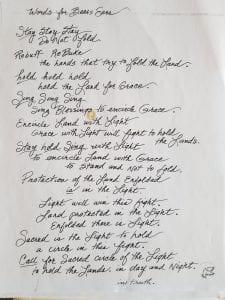 Words for Bears Ears
Stay Stay Stay
Do Not Fold
Rebuff ReBuke
the hands that try to fold the Land.
hold hold hold
hold the Land for Grace.
Sing, Song Song
Song Blessings to encircle Grace.
Encircle Land with Light
Grace with Light will fight to hold
the Lands.
Stay hold Song with Light
to encircle Land with Grace
to Stand and Not to fold.
Protection of the Land Enfolded
is in the Light.
Light will win this fight.
Land protected in the Light.
Enfolded there is Light.
Sacred is the Light to hold
a circle in this fight.
Call for Sacred circle of the Light
to hold the Lands in day and Night.